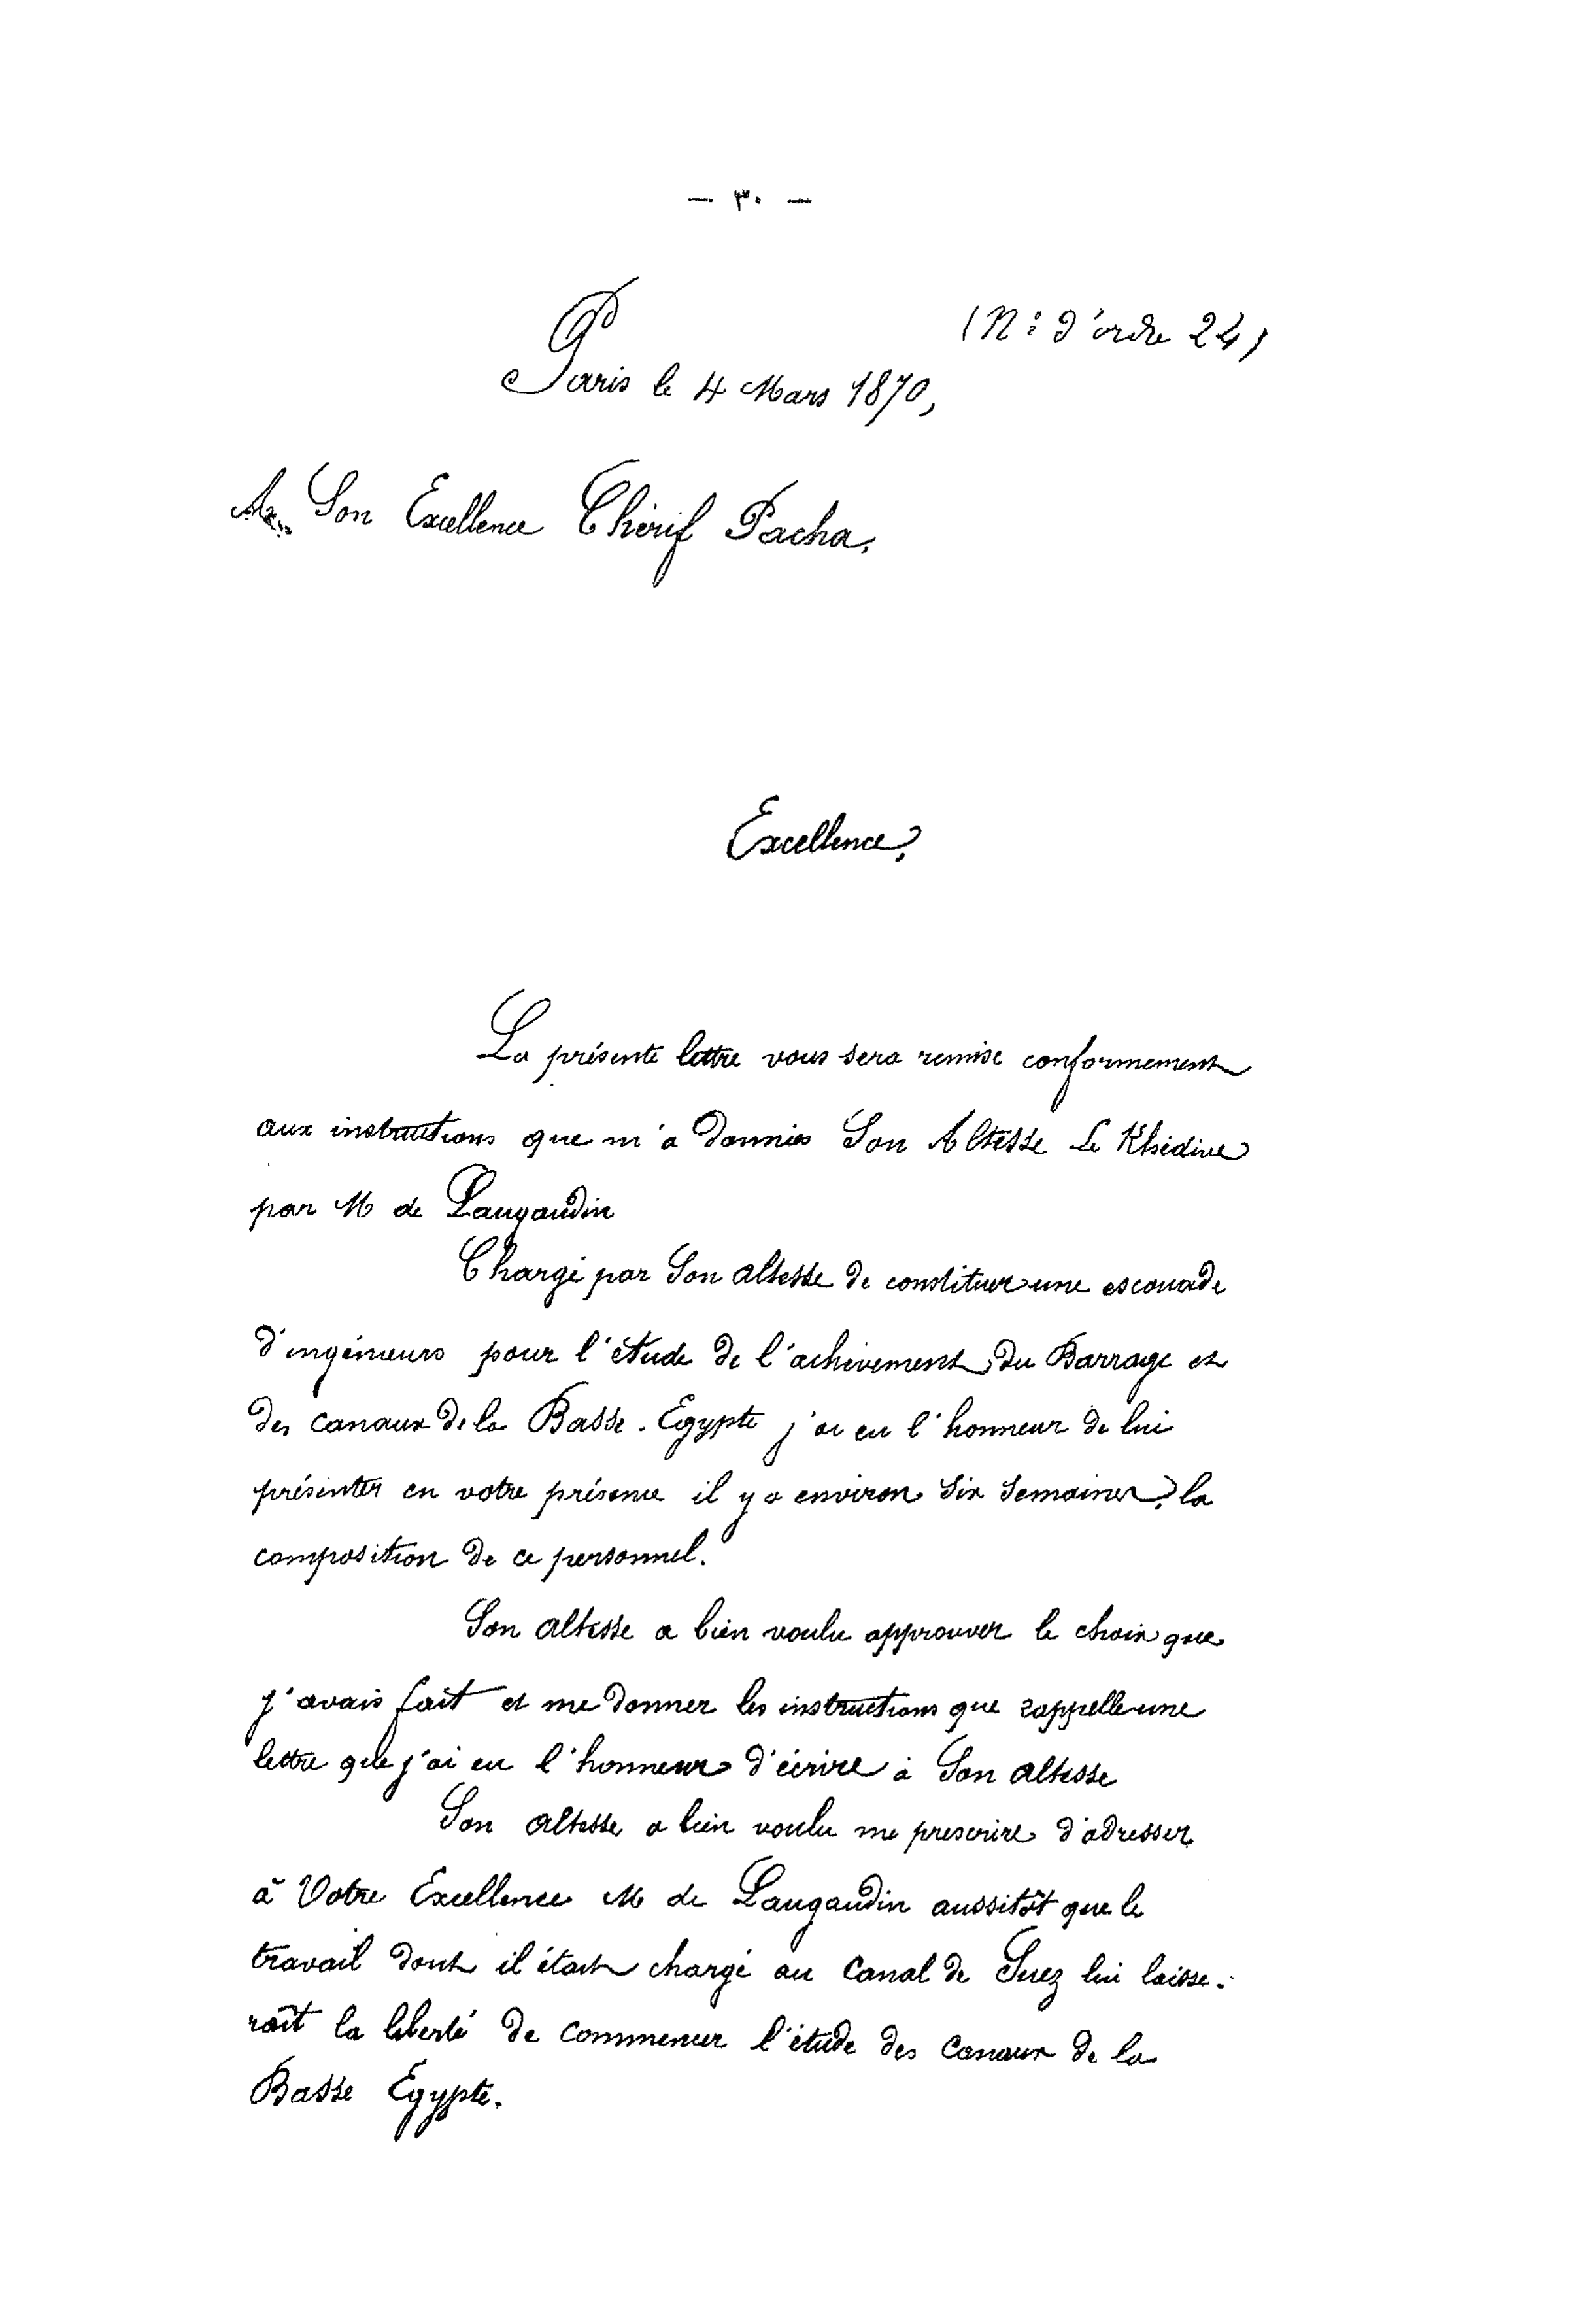 — ٣٠ —
(N: d'ordre 24)
Paris le 4 Mars 1870,
A Son Excellence Chérif Pacha,
Excellence,
La présente lettre vous sera remise conformement
aux instructions que m'a données Son Altesse Le Khédive
par M de Laugaudin
Chargé par Son Altesse de constituer une escouade
d'ingénieurs pour l'étude de l'achèvement du Barrage et
des canaux de la Basse-Egypte j'ai eu l'honneur de lui
présenter en votre présence il y a environ six semaines, la
composition de ce personnel.
Son Altesse a bien voulu approuver le choix que
j'avais fait et me donner les instructions que rappelle une
lettre que j'ai eu l'honneur d'écrire à Son Altesse
Son Altesse a bien voulu me prescrire d'adresser
à Votre Excellence M de Laugaudin aussitôt que le
travail dont il était chargé au Canal de Suez lui laisse-
rait la liberté de commencer l'étude des Canaux de la
Basse Egypte.